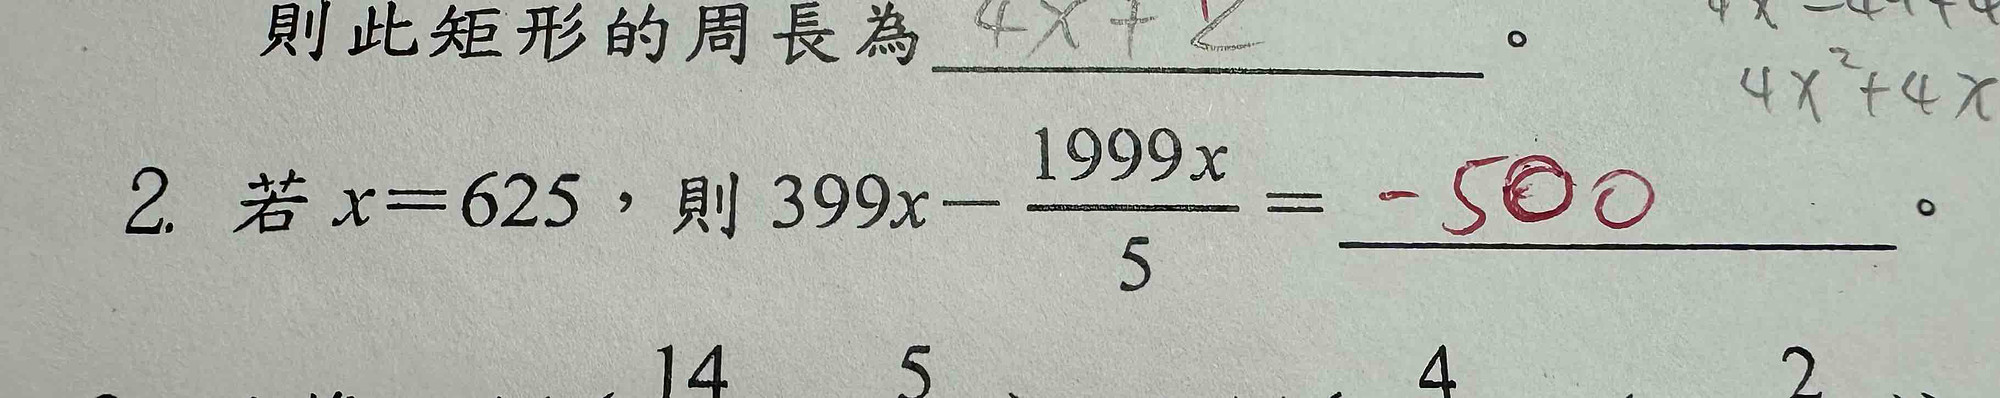 則此矩形的周長為 4x+2 。
4x²+4x
2. 若 x=625，則 399x－1999x/5＝ -500 。
14 5 4 2